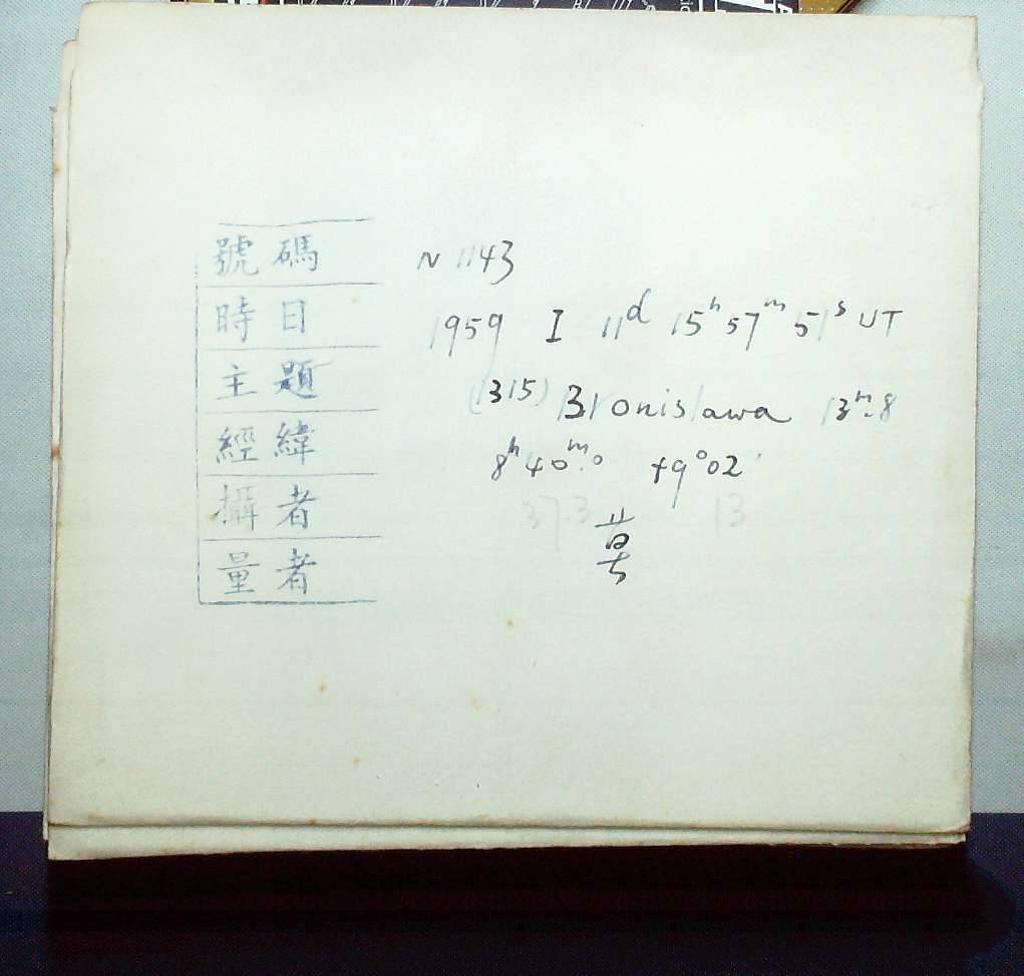 號碼 N 1143
時日 1959 I 11d 15h 57m 51s UT
主題 (315) Bronislawa 13m.8
經緯 8h 40m.0 +9°02'
攝者 37.3 13
量者